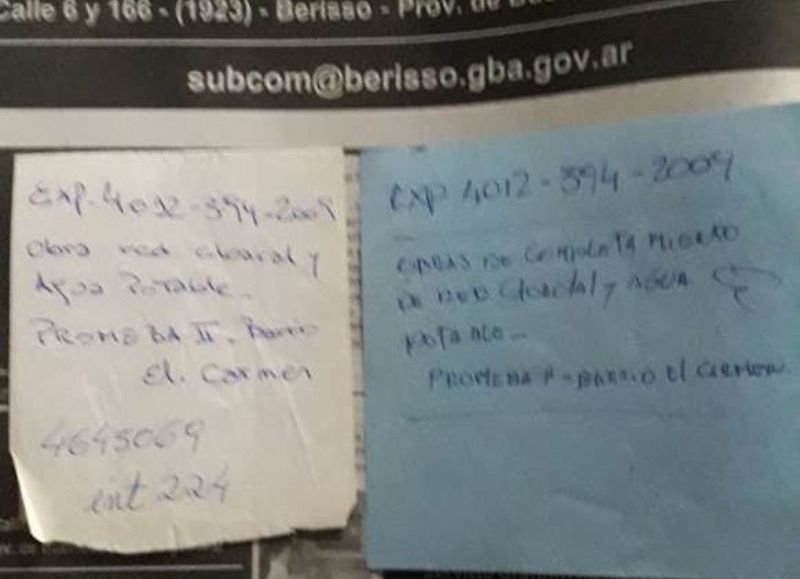 Calle 6 y 166 - (1923) - Berisso - Prov. de
subcom@berisso.gba.gov.ar
EXP. 4012-394-2009
Obra red cloacal y
Agua Potable.
PROMEBA II. Barrio
El Carmen
4645069
int 224
EXP 4012-394-2009
OBRAS DE COMPLETAMIENTO
DE RED Cloacal y AGUA
potable
PROMEBA II - BARRIO El Carmen